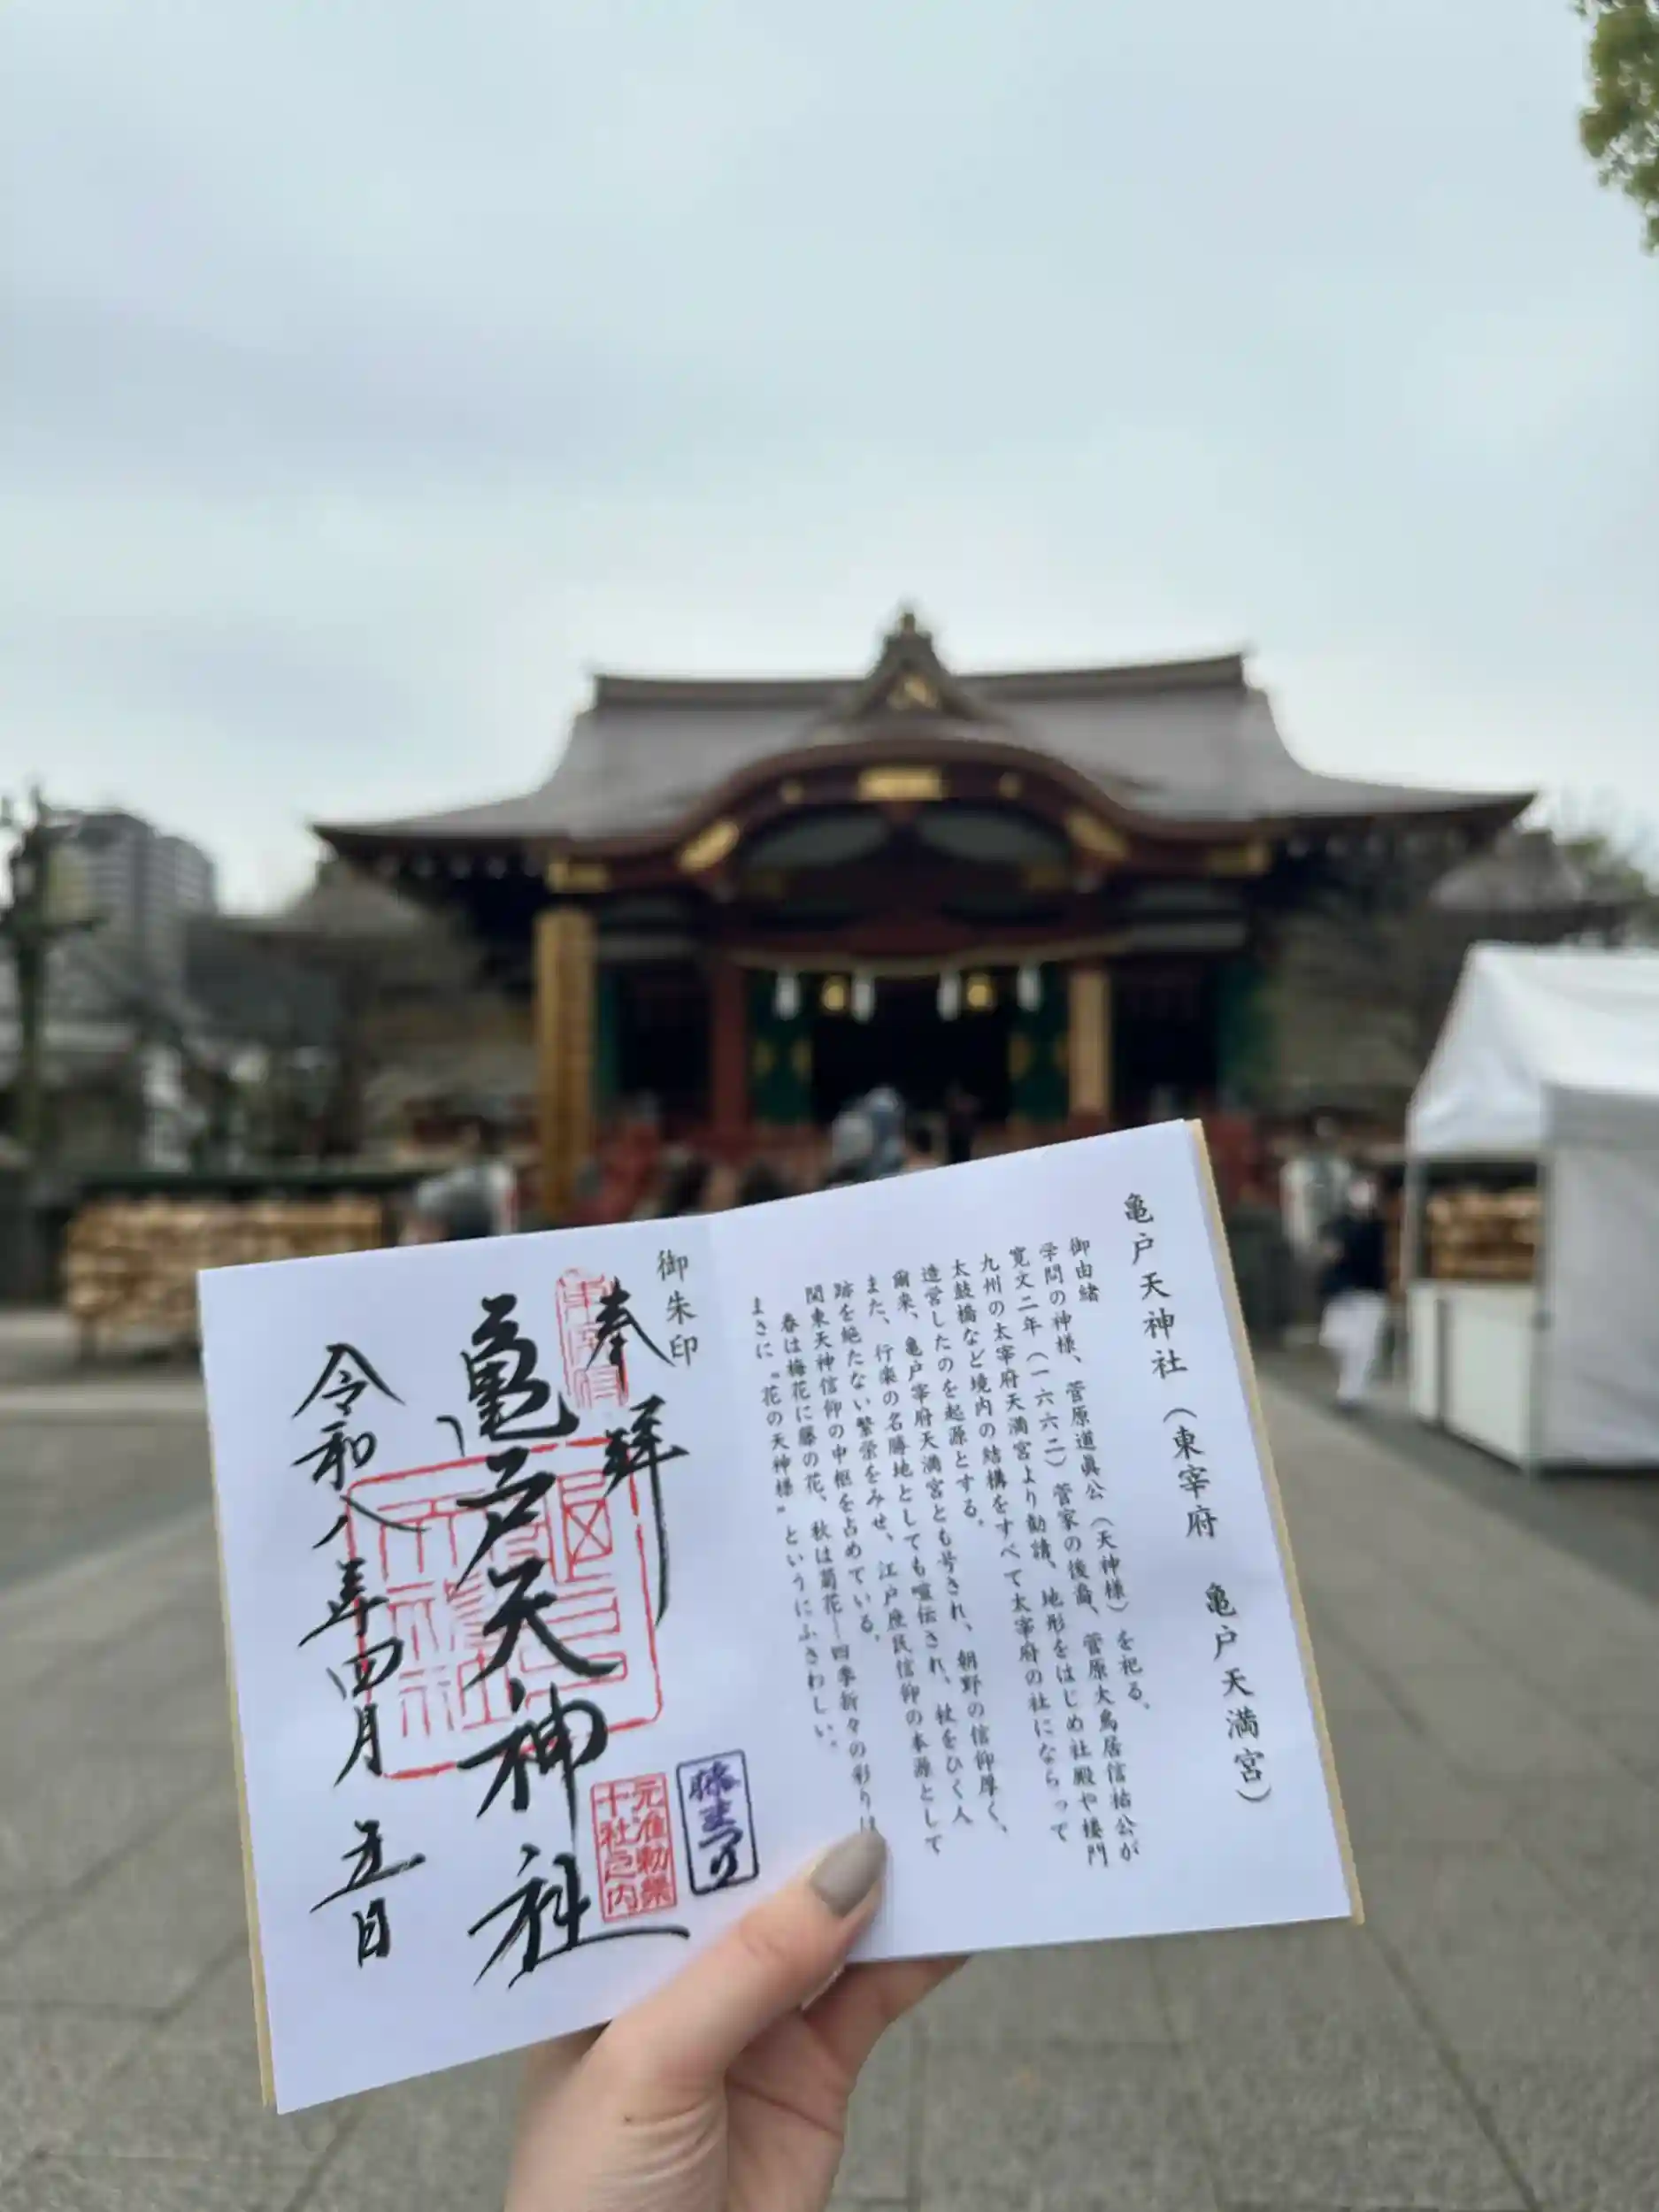 亀戸天神社（東宰府　亀戸天満宮）
御由緒
学問の神様、菅原道眞公（天神様）を祀る。
寛文二年（一六六二）菅家の後裔、菅原大鳥居信祐公が
九州の太宰府天満宮より勧請、地形をはじめ社殿や楼門
太鼓橋など境内の結構をすべて太宰府の社にならって
造営したのを起源とする。
爾来、亀戸宰府天満宮とも号され、朝野の信仰厚く、
また、行楽の名勝地としても喧伝され、杖をひく人
跡を絶たない繁栄をみせ、江戸庶民信仰の本源として
関東天神信仰の中枢を占めている。
春は梅花に藤の花、秋は菊花―四季折々の彩りは
まさに〝花の天神様〟というにふさわしい。
御朱印
奉拝
亀戸天神社
令和八年四月五日
東宰府
元准勅祭
十社之内
藤まつり